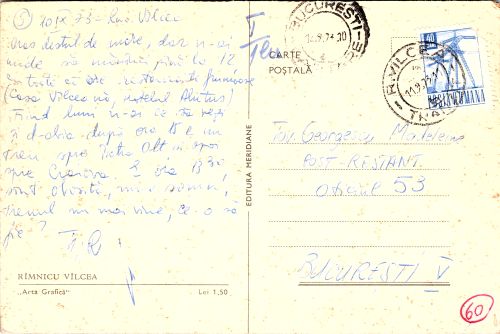 5) 10/IX 73 - Rm. Vîlcea
Oraș destul de mare, dar n-ai
unde să mănînci până la 12
cu toate că are restaurante frumoase
(Casa Vîlceană, Hotelul Alutus)
Fiind luni n-ai ce să vezi
și d-abia după ora e un
tren spre Piatra Olt și apoi
spre Craiova. E ora 13 30,
sunt obosită, mi-e somn,
trenul nu mai vine, ce-o să
fie?
RÎMNICU VÎLCEA
„Arta Grafică"
Lei 1,50
EDITURA MERIDIANE
CARTE
POȘTALĂ
BUCUREȘTI
R. VÎLCEA
40
Tov. Georgescu Madelena
POST-RESTANT
Oficiul 53
BUCUREȘTI V
60